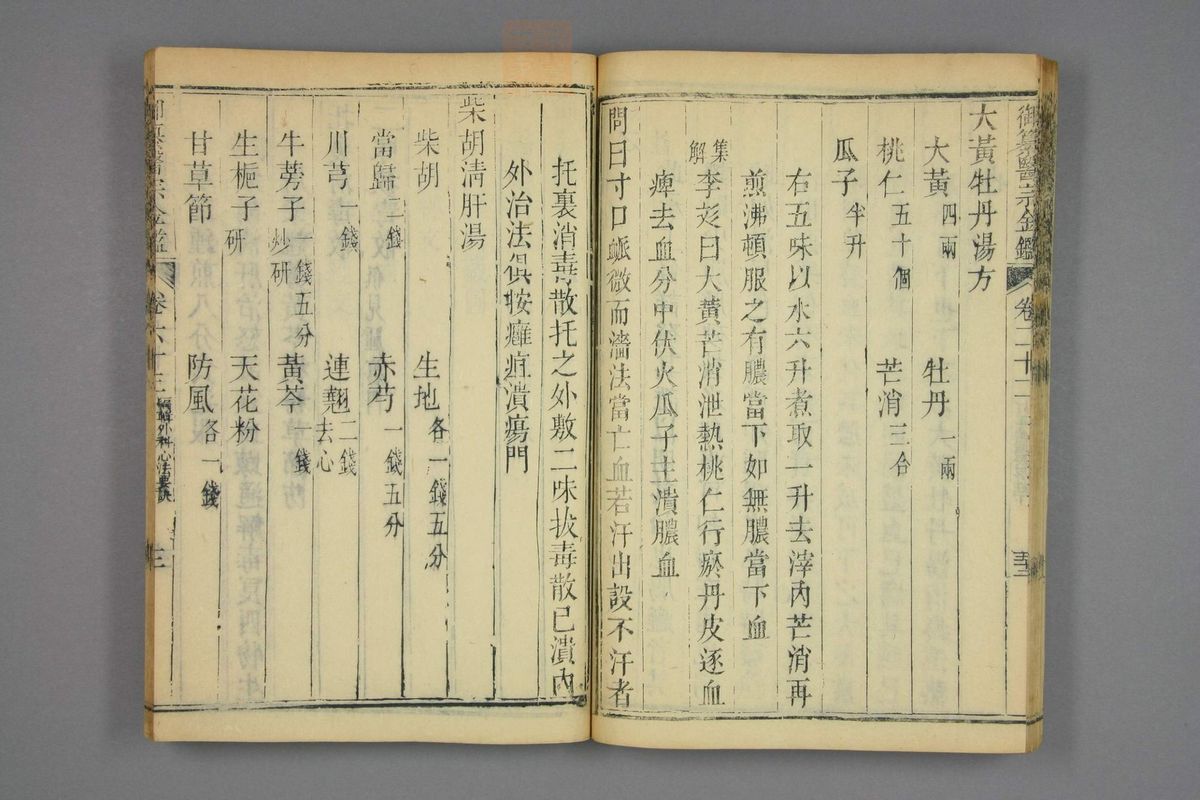 御纂醫宗金鑑 卷二十二
大黃牡丹湯方
大黃四兩 牡丹一兩
桃仁五十個 芒消三合
瓜子半升
右五味以水六升煮取一升去滓內芒消再
煎沸頓服之有膿當下如無膿當下血
集解 李彣曰大黃芒消泄熱桃仁行瘀丹皮逐血
痺去血分中伏火瓜子主潰膿血
問曰寸口脈微而濇法當亡血若汗出設不汗者
托裏消毒散托之外敷二味拔毒散已潰內
外治法俱按癰疽潰瘍門
柴胡清肝湯
柴胡 生地各一錢五分
當歸二錢 赤芍一錢五分
川芎一錢 連翹二錢去心
牛蒡子一錢五分炒研 黃芩一錢
生梔子研 天花粉
甘草節 防風各一錢
御纂醫宗金鑑 卷六十三 編輯外科心法要訣